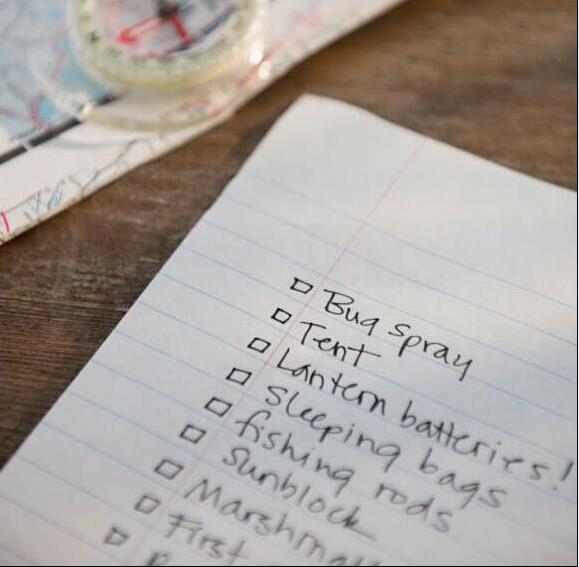 Bug spray
Tent
Lantern batteries!
Sleeping bags
fishing rods
Sunblock
Marshmall
First